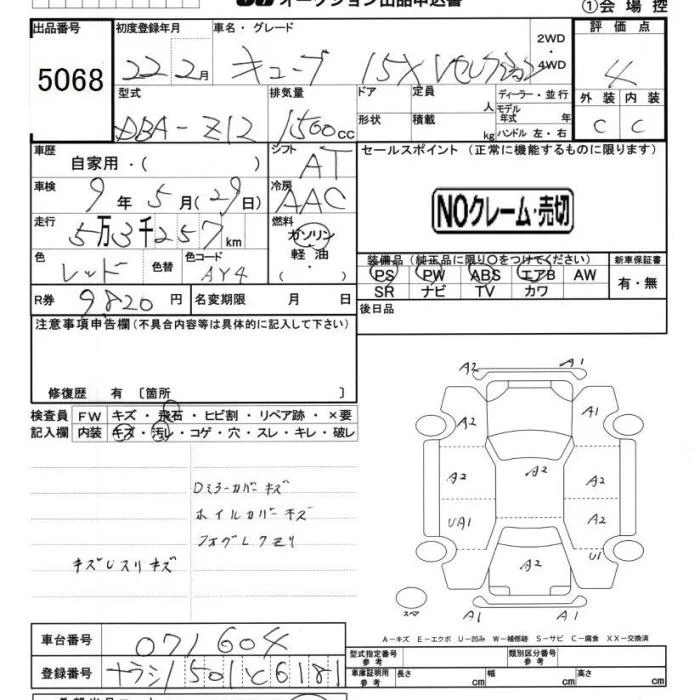 オークション出品申込書
①会場控
出品番号
5068
初度登録年月
22 2月
車名・グレード
キューブ 15X Vセレクション
2WD
・
4WD
評価点
4
外装 内装
C C
型式
DBA-Z12
排気量
1500 cc
ドア
形状
定員 人
積載 kg
ディーラー・並行
モデル年式 年
ハンドル 左・右
車歴
自家用・( )
シフト
AT
車検
9年5月(29日)
冷房
AAC
走行
5万3千257km
燃料
ガソリン
軽油
( ・ )
色
レッド
色替
色コード
AY4
R券 9820円
名変期限 月 日
セールスポイント (正常に機能するものに限ります)
NOクレーム・売切
装備品(純正品に限り○をつけてください)
PS PW ABS エアB AW
SR ナビ TV カワ
新車保証書
有・無
後日品
注意事項申告欄(不具合内容等は具体的に記入して下さい)
修復歴 有〔箇所 〕
検査員
記入欄
FW キズ・飛石・ヒビ割・リペア跡・×要
内装 キズ・汚レ・コゲ・穴・スレ・キレ・破レ
Dミラーカバーキズ
ホイルカバーキズ
フォグLクモリ
キズUスリキズ
A2 A1
A2 A1
A2 A2 A2
UA1 A2
A2 U1
A1 A1
スペア
A-キズ E-エクボ U-凹み W-補修跡 S-サビ C-腐食 XX-交換済
車台番号 071604
登録番号
型式指定番号
参考
類別区分番号
参考
車庫証明用
参考
長さ cm
幅 cm
高さ cm